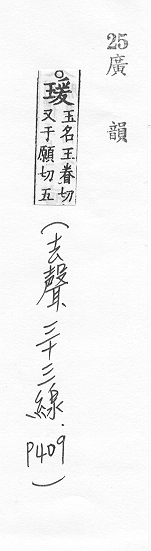 25
廣韻
瑗 玉名王眷切
又于願切五
(去聲、三十三線.
P409)